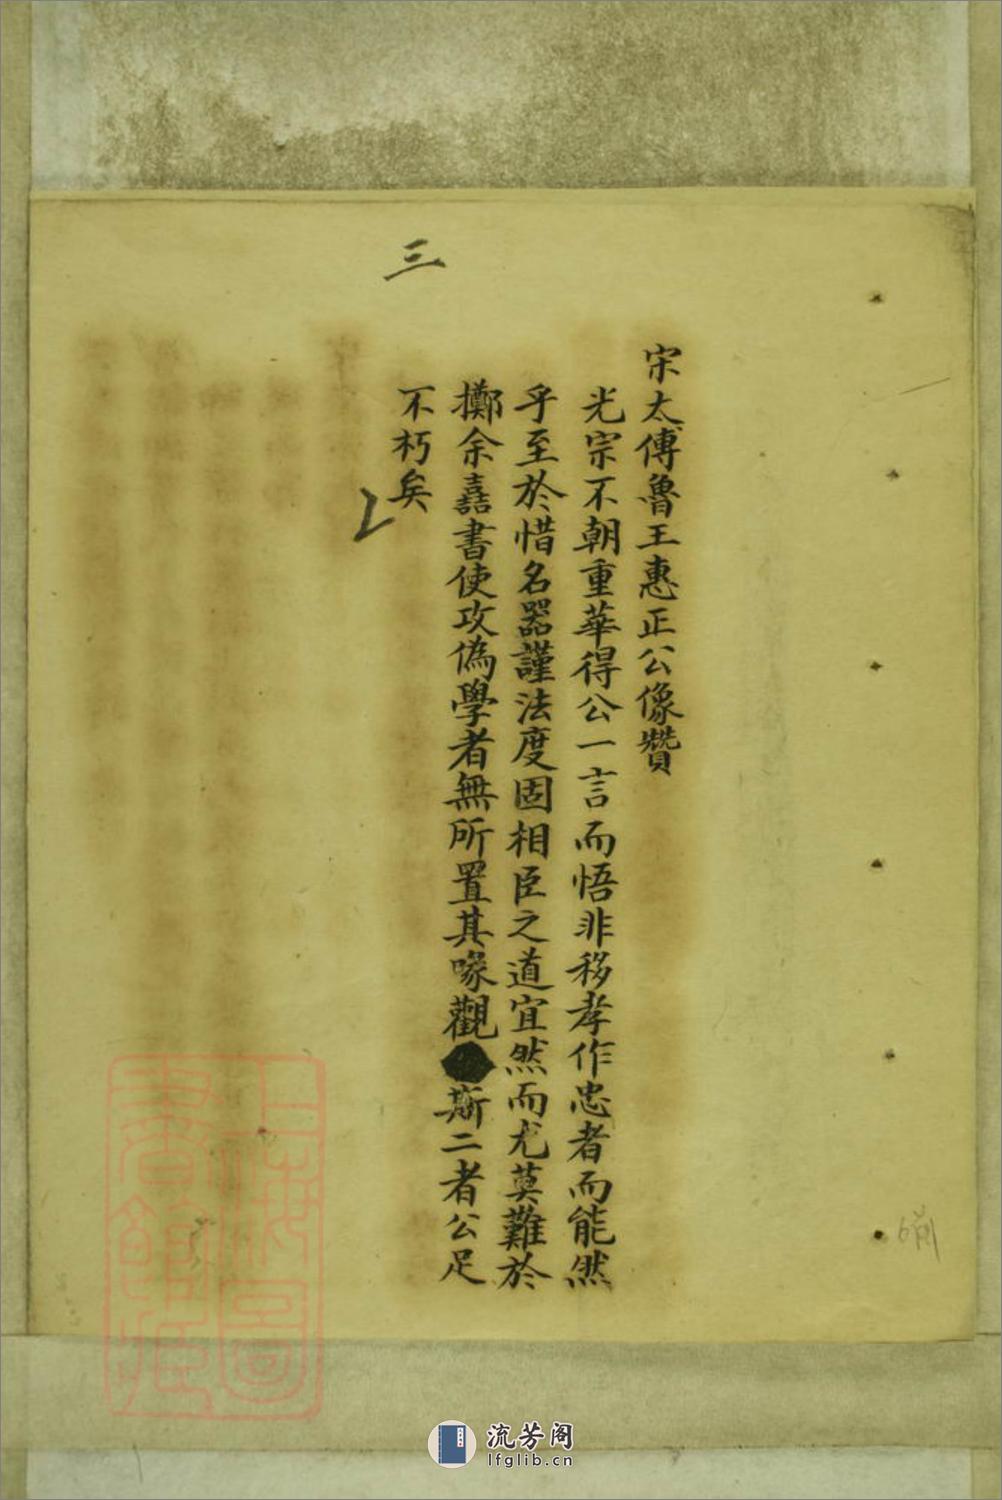 三
宋太傅魯王惠正公像贊
光宗不朝重華得公一言而悟非移孝作忠者而能然
乎至於惜名器謹法度固相臣之道宜然而尤莫難於
擲余嚞書使攻偽學者無所置其喙觀斯二者公足
不朽矣
上海圖
書館藏
流芳阁
lfglib.cn